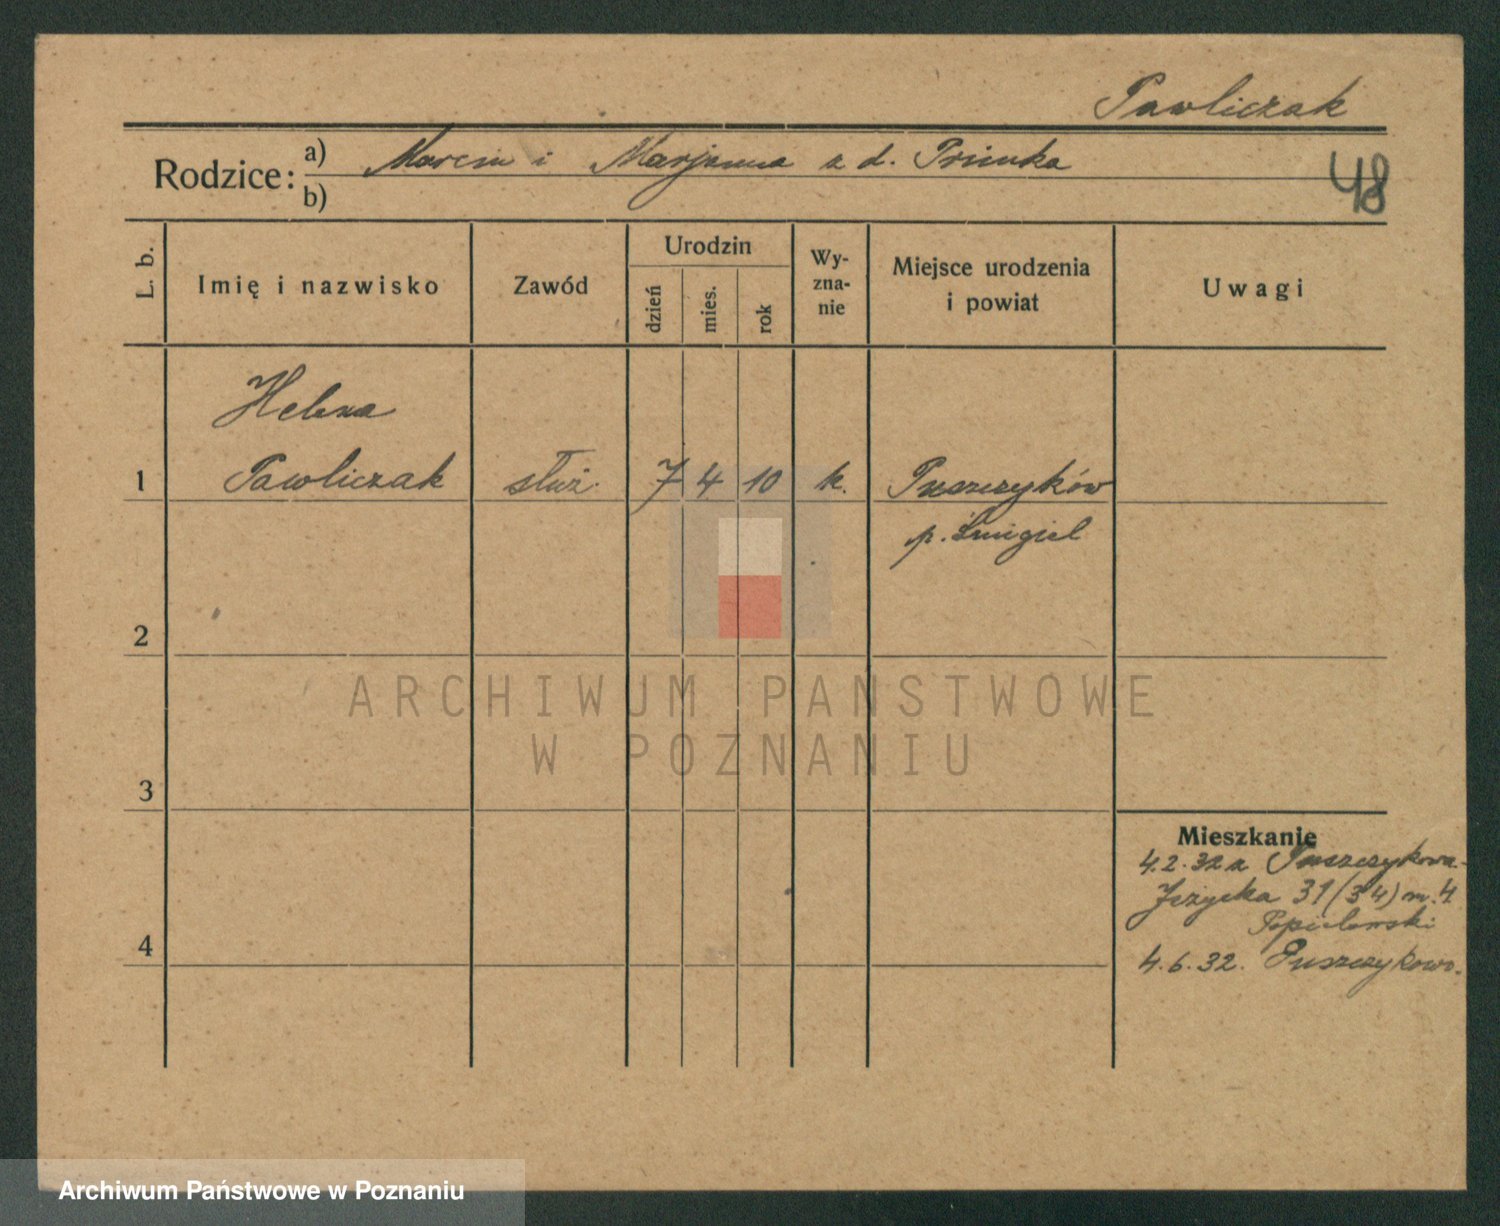 Pawliczak
Rodzice: a) Marcin i Marjanna z d.
b)
48
L. b.
Imię i nazwisko
Zawód
Urodzin
dzień
mies.
rok
Wy-
zna-
nie
Miejsce urodzenia
i powiat
Uwagi
Helena
1 Pawliczak służ. 7 4 10 k. Puszczyków
p. Śmigiel
2
ARCHIWUM PAŃSTWOWE
W POZNANIU
3
Mieszkanie
4.2.32 z Puszczykowa-
Jeżycka 31 (34) m. 4
4
4.6.32. Puszczykowo.
Archiwum Państwowe w Poznaniu